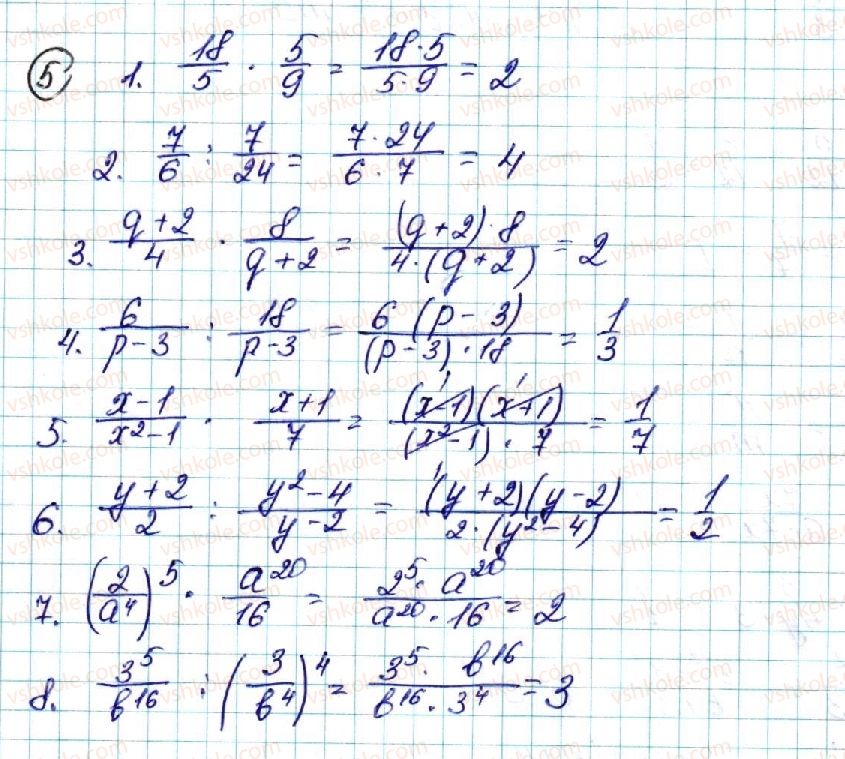 5 1. 18/5 · 5/9 = 18·5/5·9 = 2
2. 7/6 : 7/24 = 7·24/6·7 = 4
3. q+2/4 · 8/q+2 = (q+2)·8/4·(q+2) = 2
4. 6/p-3 : 18/p-3 = 6(p-3)/(p-3)·18 = 1/3
5. x-1/x²-1 · x+1/7 = (x-1)(x+1)/(x²-1)·7 = 1/7
6. y+2/2 : y²-4/y-2 = (y+2)(y-2)/2·(y²-4) = 1/2
7. (2/a⁴)⁵ · a²⁰/16 = 2⁵·a²⁰/a²⁰·16 = 2
8. 3⁵/b¹⁶ : (3/b⁴)⁴ = 3⁵·b¹⁶/b¹⁶·3⁴ = 3